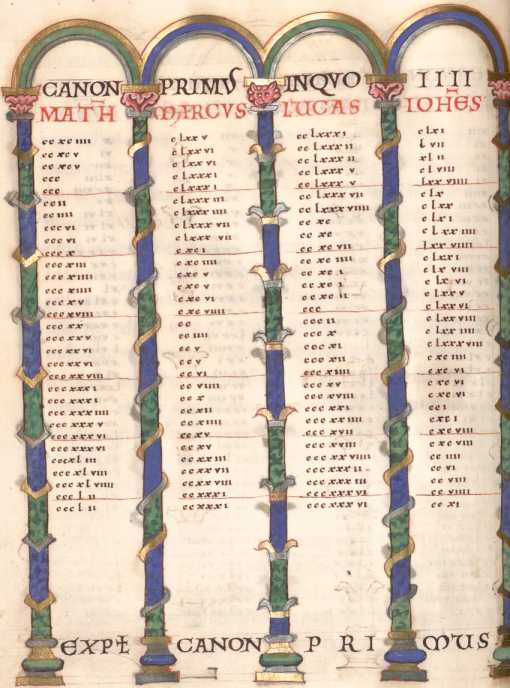 CANON PRIMV INQVO IIII
MATH MARCVS LUCAS IOHES
cc xc iiii
cc xc v
cc xc v
ccc
ccc
cc ii
cc iiii
ccc vi
ccc vi
ccc x
ccc xiii
ccc xiiii
ccc xiiii
ccc xv
ccc xviii
ccc xx
ccc xx v
ccc xx vi
ccc xx vi
ccc xx vii
ccc xxx i
ccc xxx i
ccc xxx iiii
ccc xxx v
ccc xxx vi
cccxl iii
ccc xl viii
ccc xl viiii
ccc l ii
ccc l ii
c lxx v
c lxx vi
c lxx vi
c lxxx i
c lxxx i
c lxxx ii
c lxxx iiii
c lxxx vii
c lxxx vii
c xc i
c xc iiii
c xc v
c xc v
c xc vi
c xc viiii
cc
cc iiii
cc v
cc v
cc vi
cc viiii
cc x
cc xii
cc xiiii
cc xv
cc xx iiii
cc xx vii
cc xx viiii
cc xxx i
cc xxx i
cc lxxx i
cc lxxx ii
cc lxxx ii
cc lxxx v
cc lxxx v
cc lxxx vii
cc lxxx viiii
cc xc
cc xc
cc xc vii
cc xc i
cc xc i
cc xc i
cc xc ii
ccc
ccc ii
ccc x
ccc xi
ccc xii
ccc xiiii
ccc xv
ccc xviii
ccc xx i
ccc xx iiii
ccc xx viiii
ccc xxx ii
ccc xxx iiii
ccc xxx vi
ccc xxx vi
c lx i
l vii
xl ii
c l viii
lxx viiii
c lv
c lx
c lx i
c lxx iiii
lxx viiii
c lxx i
c lx vi
c lxx v
c lxx vi
c lxx viii
c lxx viiii
c xc iiii
c xc vi
c xc vi
cc i
c xc i
c xc viii
c xc viii
cc iiii
cc vi
cc viii
cc viiii
cc xi
EXPL CANON PRIMUS